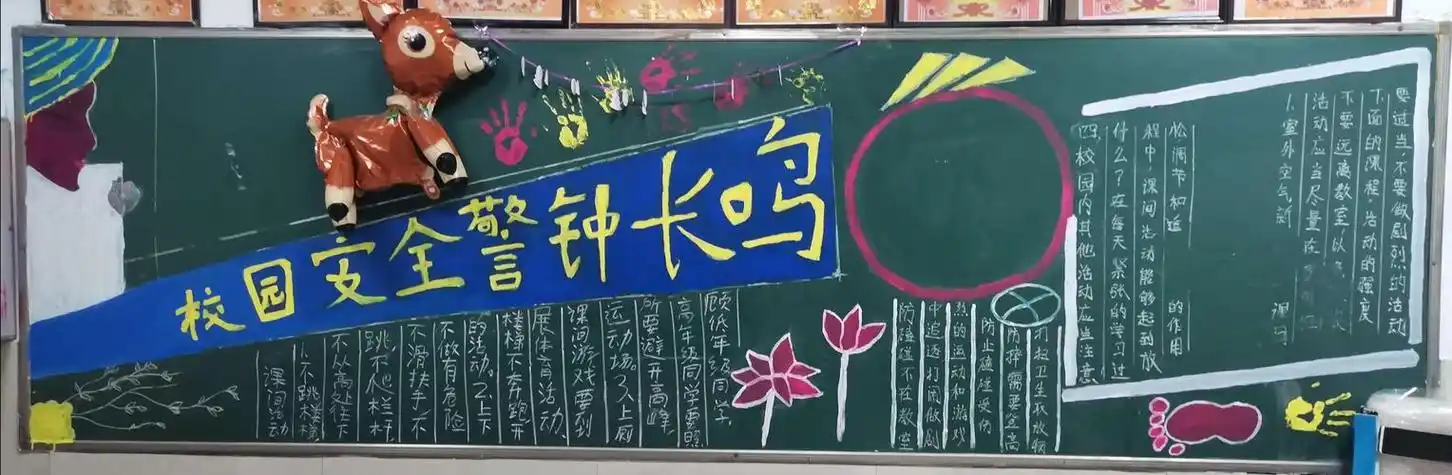 校园安全警钟长鸣
课间活动
1.不跳楼梯
不从高处往下
跳不爬栏杆
不滑扶手不
不做有危险
的活动。2.上下
楼梯不奔跑开
展体育活动、
课间游戏要到
运动场。3.上厕
所要避开高峰,
高年级同学要照
顾低年级同学.
防磕碰不在教室
中追逐打闹做剧
烈的运动和游戏
防止磕碰受伤
防摔需要登高
打扫卫生取放物
四校园内其他活动应当注意
什么?在每天紧张的学习过
程中,课间活动能够起到放
松调节和适 的作用
1.室外空气新 课间
活动应当尽量在
不要远离教室以
下面的课程。活动的强度
要适当不要做剧烈的活动